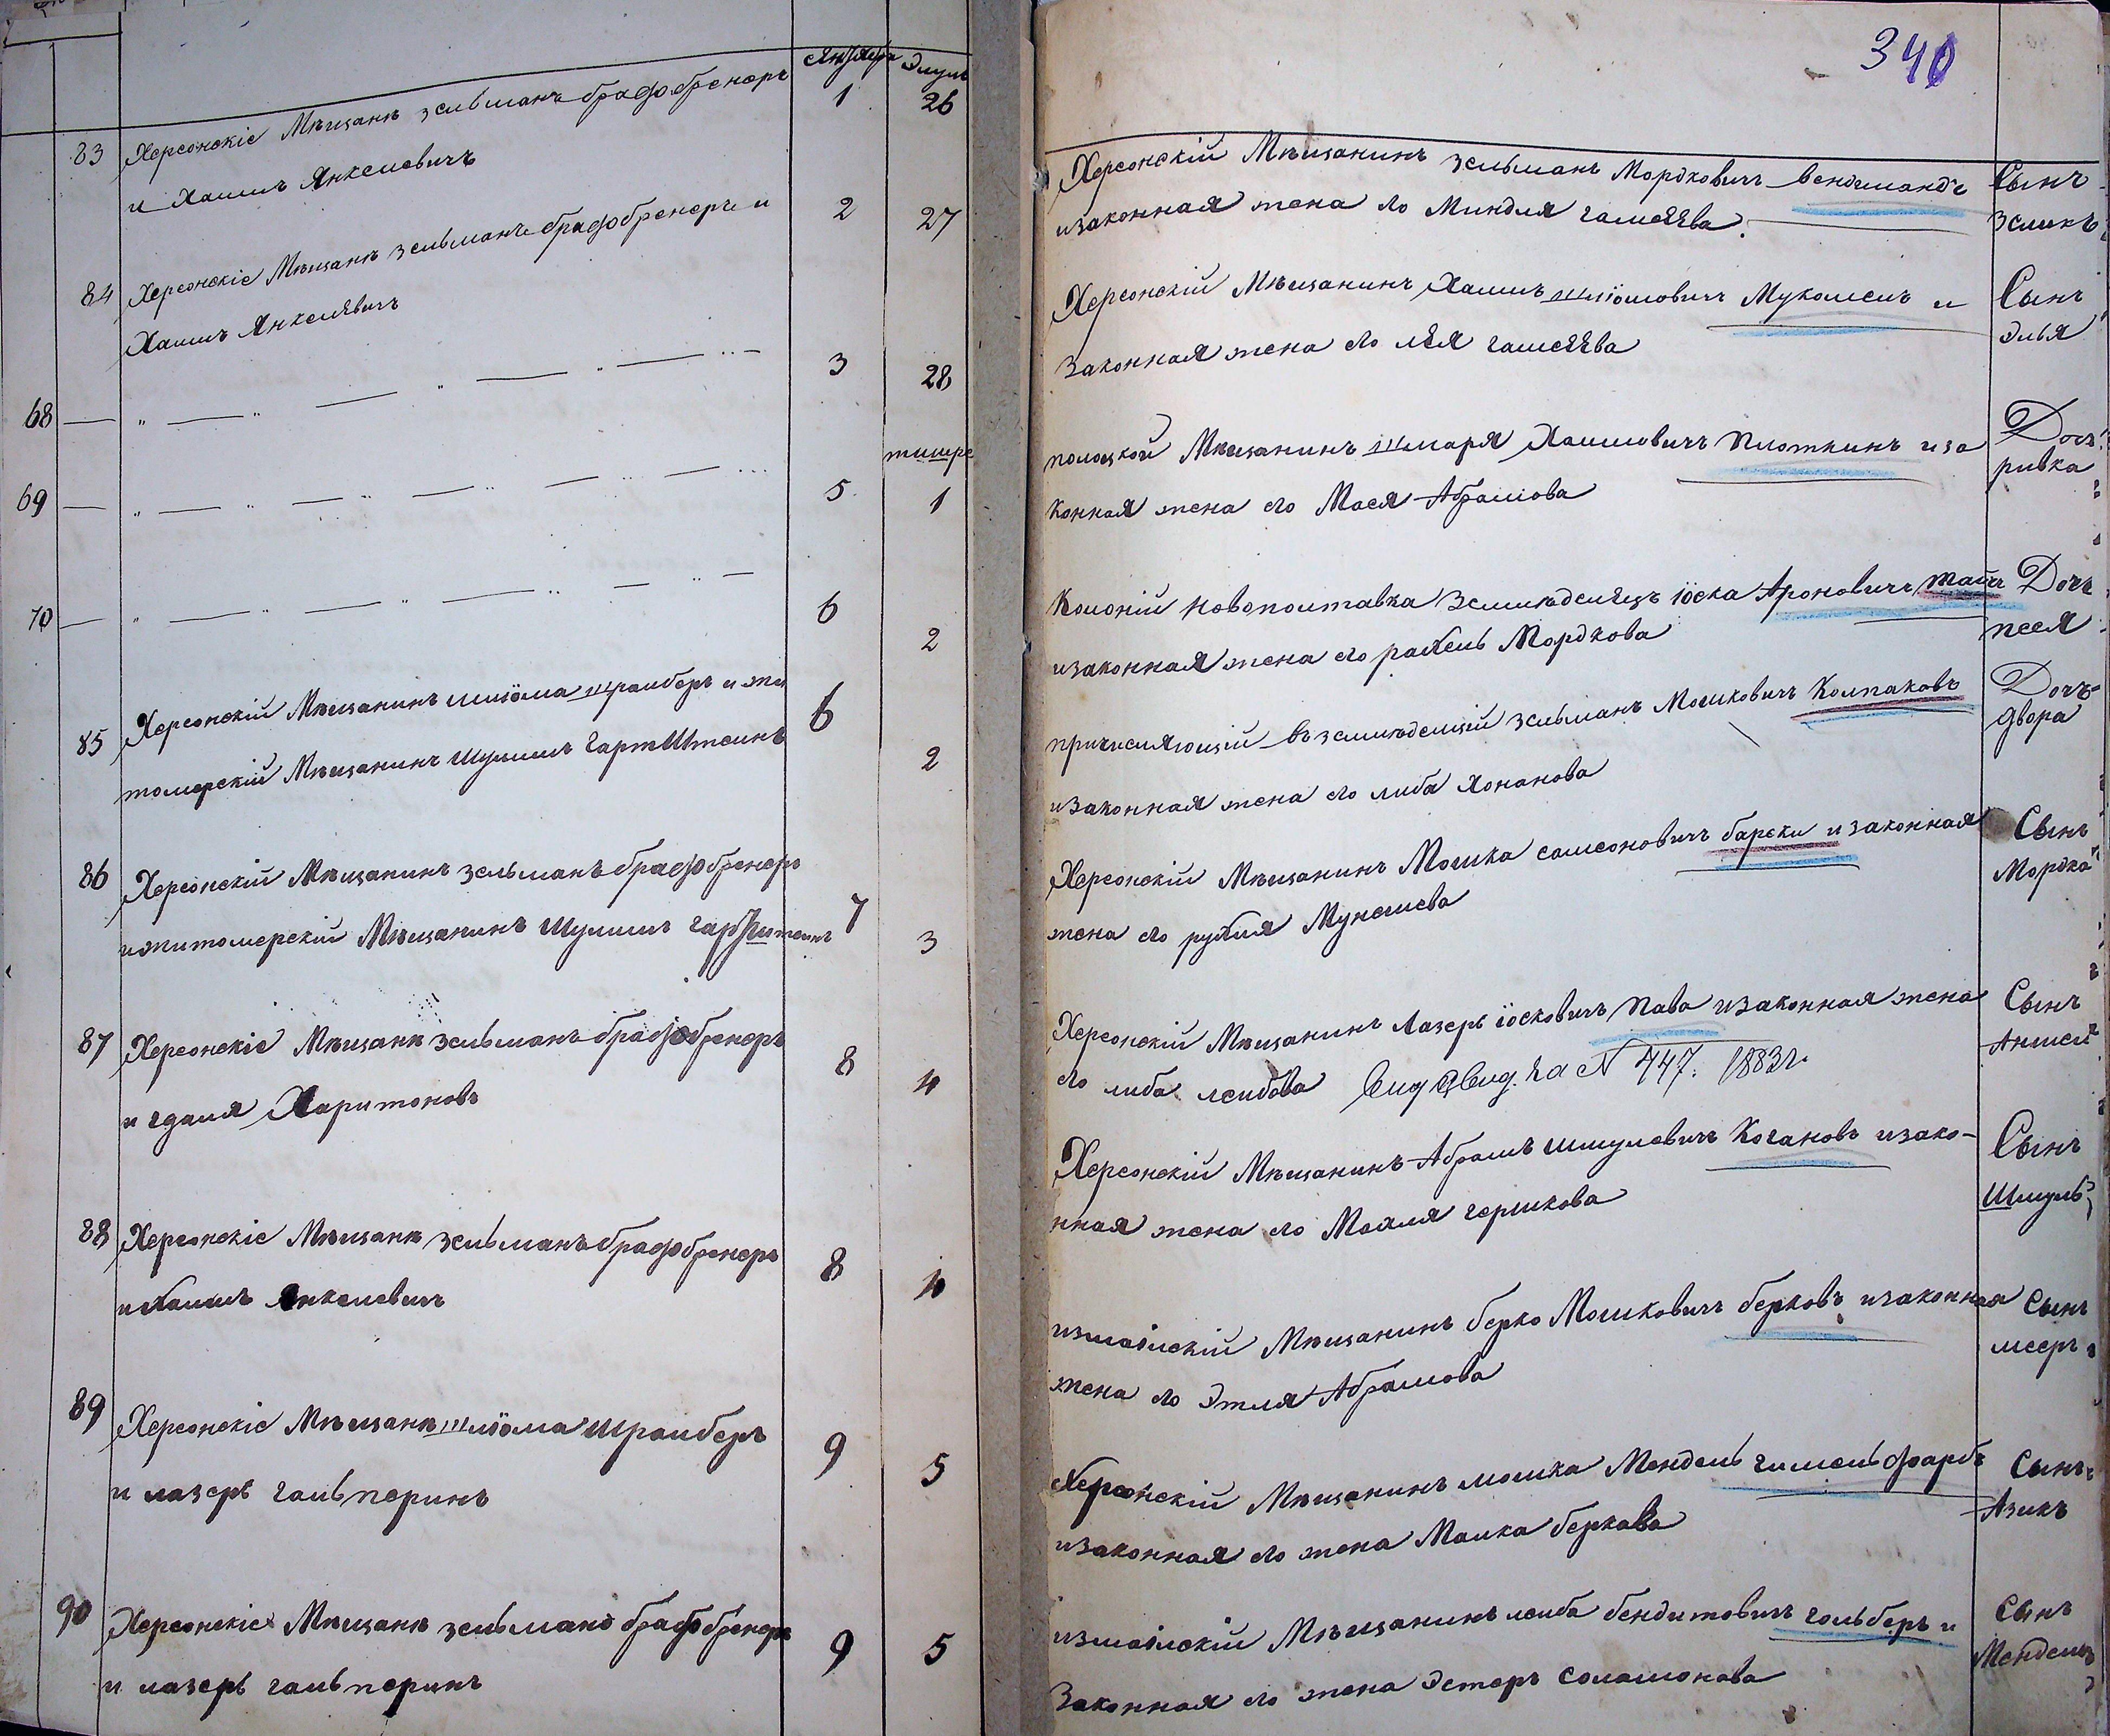 Августа Элулъ
83 Херсонскіе Мѣщане зельманъ брафбренеръ 1 26
и Хаимъ Янкелевичъ
84 Херсонскіе Мѣщане зельманъ брафбренеръ и 2 27
Хаимъ Янкелевичъ
68 — „ — „ — „ — „ — 3 28
тишре
69 — „ — „ — „ — „ — 5 1
70 — „ — „ — „ — „ — 6 2
85 Херсонскій Мѣщанинъ шлiома Шраиберъ и жи 6 2
томерскій Мѣщанинъ Шулимъ Гартштеинъ
86 Херсонскій Мѣщанинъ зельманъ брафбренеръ
и житомерскій Мѣщанинъ Шулимъ гартштеинъ 7 3
87 Херсонскіе Мѣщане зельманъ брафбренеръ 8 4
и гдаля Харитоновъ
88 Херсонскіе Мѣщане зельманъ брафбренеръ 8 4
и Хаимъ Янкелевичъ
89 Херсонскіе Мѣщане шлiома Шраиберъ 9 5
и лазеръ гальперинъ
90 Херсонскіе Мѣщане зельманъ брафбренеръ 9 5
и лазеръ гальперинъ
340
Херсонскій Мѣщанинъ зельманъ Мордковичъ вендимандъ Сынъ
и законная жена его Миндля Зеликъ
Херсонскій Мѣщанинъ Хаимъ шлiомовичъ Мукомелъ и Сынъ
Законная жена его лея Элья
полоцкой Мѣщанинъ шмаря Хаимовичъ плоткинъ и за Дочь
конная жена его Мася Абрамова ривка
Колоній Новополтавка Земледелецъ iоска Ароновичъ тайчъ Дочь
и законная жена его рахель Мордкова песя
причисляющій въ земледелцій зельманъ Мошковичъ Колпаковъ Дочь
и законная жена его либа Хонанова двора
Херсонскій Мѣщанинъ Мошка самсоновичъ барски и законная Сынъ
жена его рухля Мунешева Мордка
Херсонскій Мѣщанинъ Лазеръ iосковичъ пава и законная жена Сынъ
его либа леибова Выд Свид. за № 447. 1883 г. Аншел
Херсонскій Мѣщанинъ Абрамъ шмулевичъ Когановъ и зако- Сынъ
нная жена его Махля гершкова Шмуль
измаілскій Мѣщанинъ берко Мошковичъ берковъ и законная Сынъ
жена его Этля Абрамова мееръ
Херсонскій Мѣщанинъ мошка Мендель гимельфарбъ Сынъ
и законная его жена Малка беркава Азикъ
измаілскій Мѣщанинъ леиба бендитовичъ гольберъ и Сынъ
Законная его жена Эстеръ соламонова Мендель